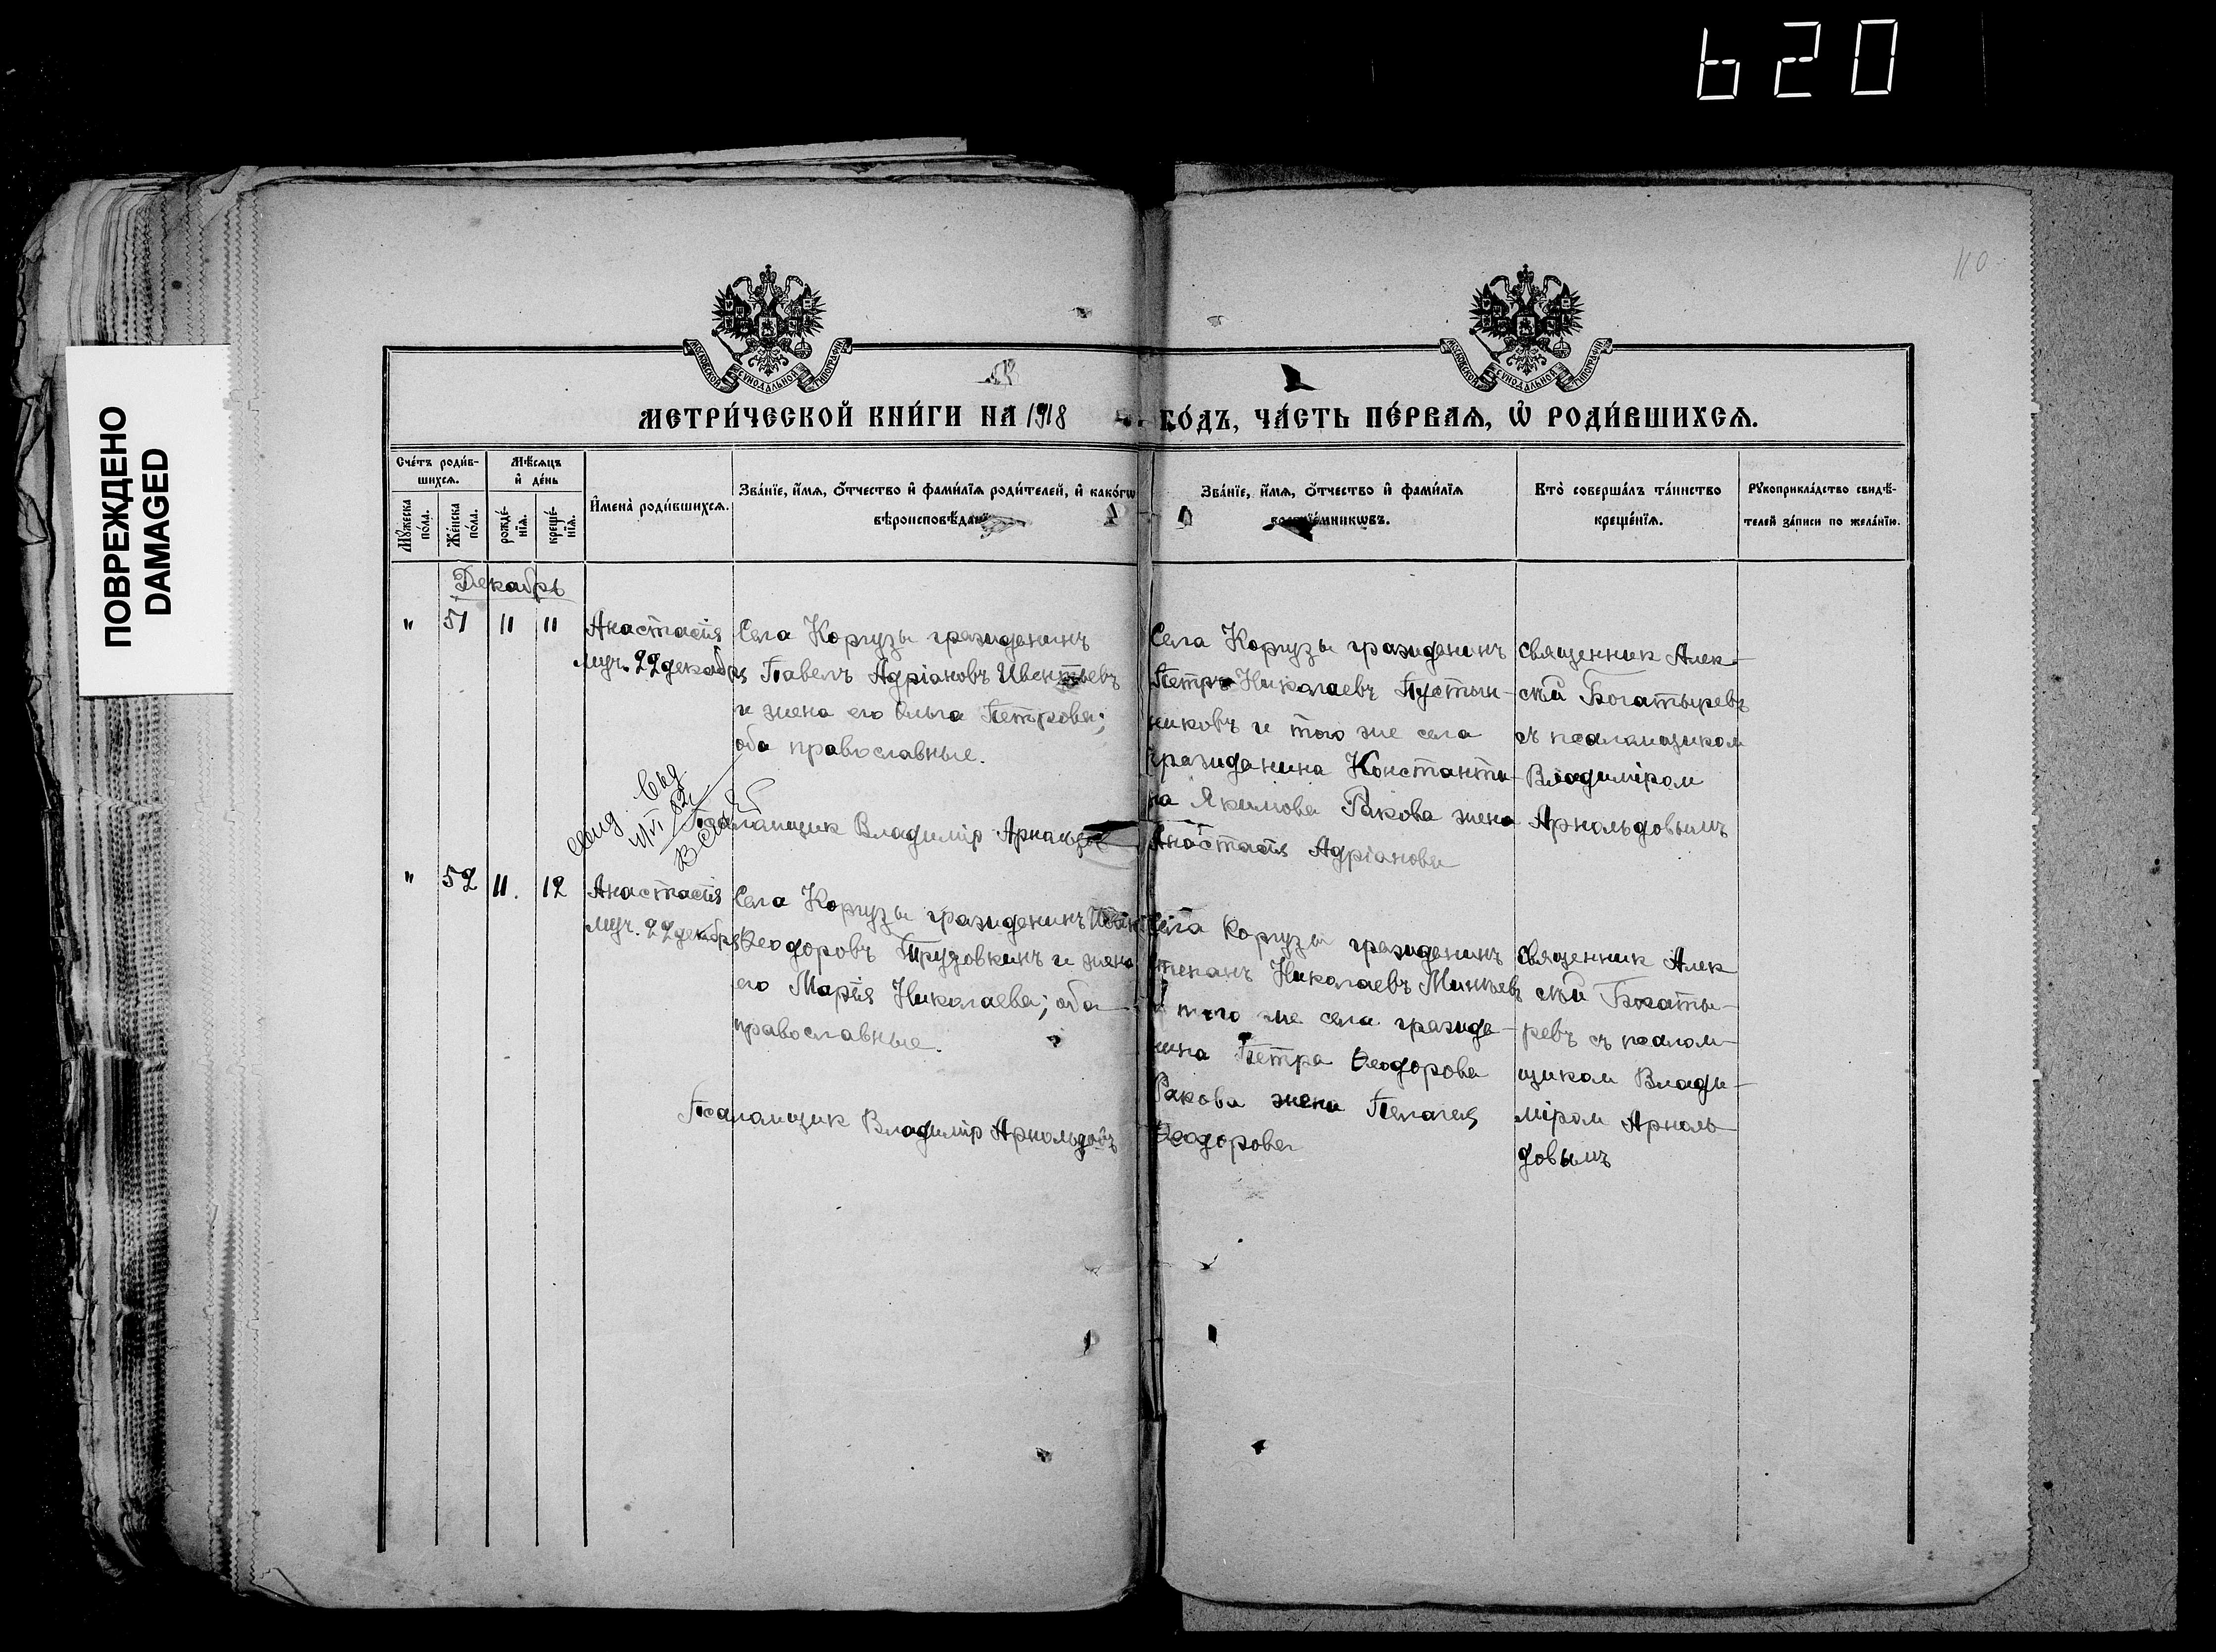 620
110
ПОВРЕЖДЕНО
DAMAGED
МОСКОВСКОЙ СѴНОДАЛЬНОЙ ТИПОГРАФІИ
МОСКОВСКОЙ СѴНОДАЛЬНОЙ ТИПОГРАФІИ
МЕТРИ́ЧЕСКОЙ КНИ́ГИ НА 1918 ГО́ДЪ, ЧА́СТЬ ПЕ́РВАѦ, Ѽ РОДИ́ВШИХСѦ.
Сче́тъ роди́в-
шихсѧ.
Мѣ́сѧцъ
и҆ де́нь
Мꙋ́жеска
по́ла.
Же́нска
по́ла.
рожде́-
нїѧ.
креще́-
нїѧ.
И҆мена̀ роди́вшихсѧ.
Зва́нїе, и҆́мѧ, ѻ҆́тчество и҆ фами́лїѧ роди́телей, и҆ како́гѡ
вѣроисповѣ́данїѧ
Зва́нїе, и҆́мѧ, ѻ҆́тчество и҆ фами́лїѧ
воспрїе́мникѡвъ.
Кто̀ соверша́лъ та́инство
креще́нїѧ.
Рꙋкоприкла́дство свидѣ́-
телей за́писи по жела́нїю.
Декабрь
" 51 11 11
Анастасія
муч. 22 декабря
Села Коргузы гражданинъ
Павелъ Адріановъ
и жена его Ольга Петрова;
оба православные.
Псаломщик Владимір
Села Коргузы гражданинъ
Петръ Николаевъ Пустын-
никовъ и того же села
гражданина Константи-
на Якимова Ракова жена
Анастасія Адріанова
священник Алек-
сѣй Богатыревъ
съ псаломщиком
Владиміром
Арнольдовымъ
" 52 11. 12
Анастасія
муч. 22 декабря
Села Коргузы гражданинъ
Ѳеодоровъ Трузовкинъ и жена
его Марія Николаева; оба
православные.
Псаломщик Владимір Арнольдовъ
Села Коргузы гражданинъ
Степанъ Николаевъ Минѣевъ
и того же села гражда-
нина Петра Ѳеодорова
Ракова жена Пелагея
Ѳеодорова
священник Алек
сѣй Богаты-
ревъ съ псалом-
щиком Влади-
міром Арноль-
довымъ